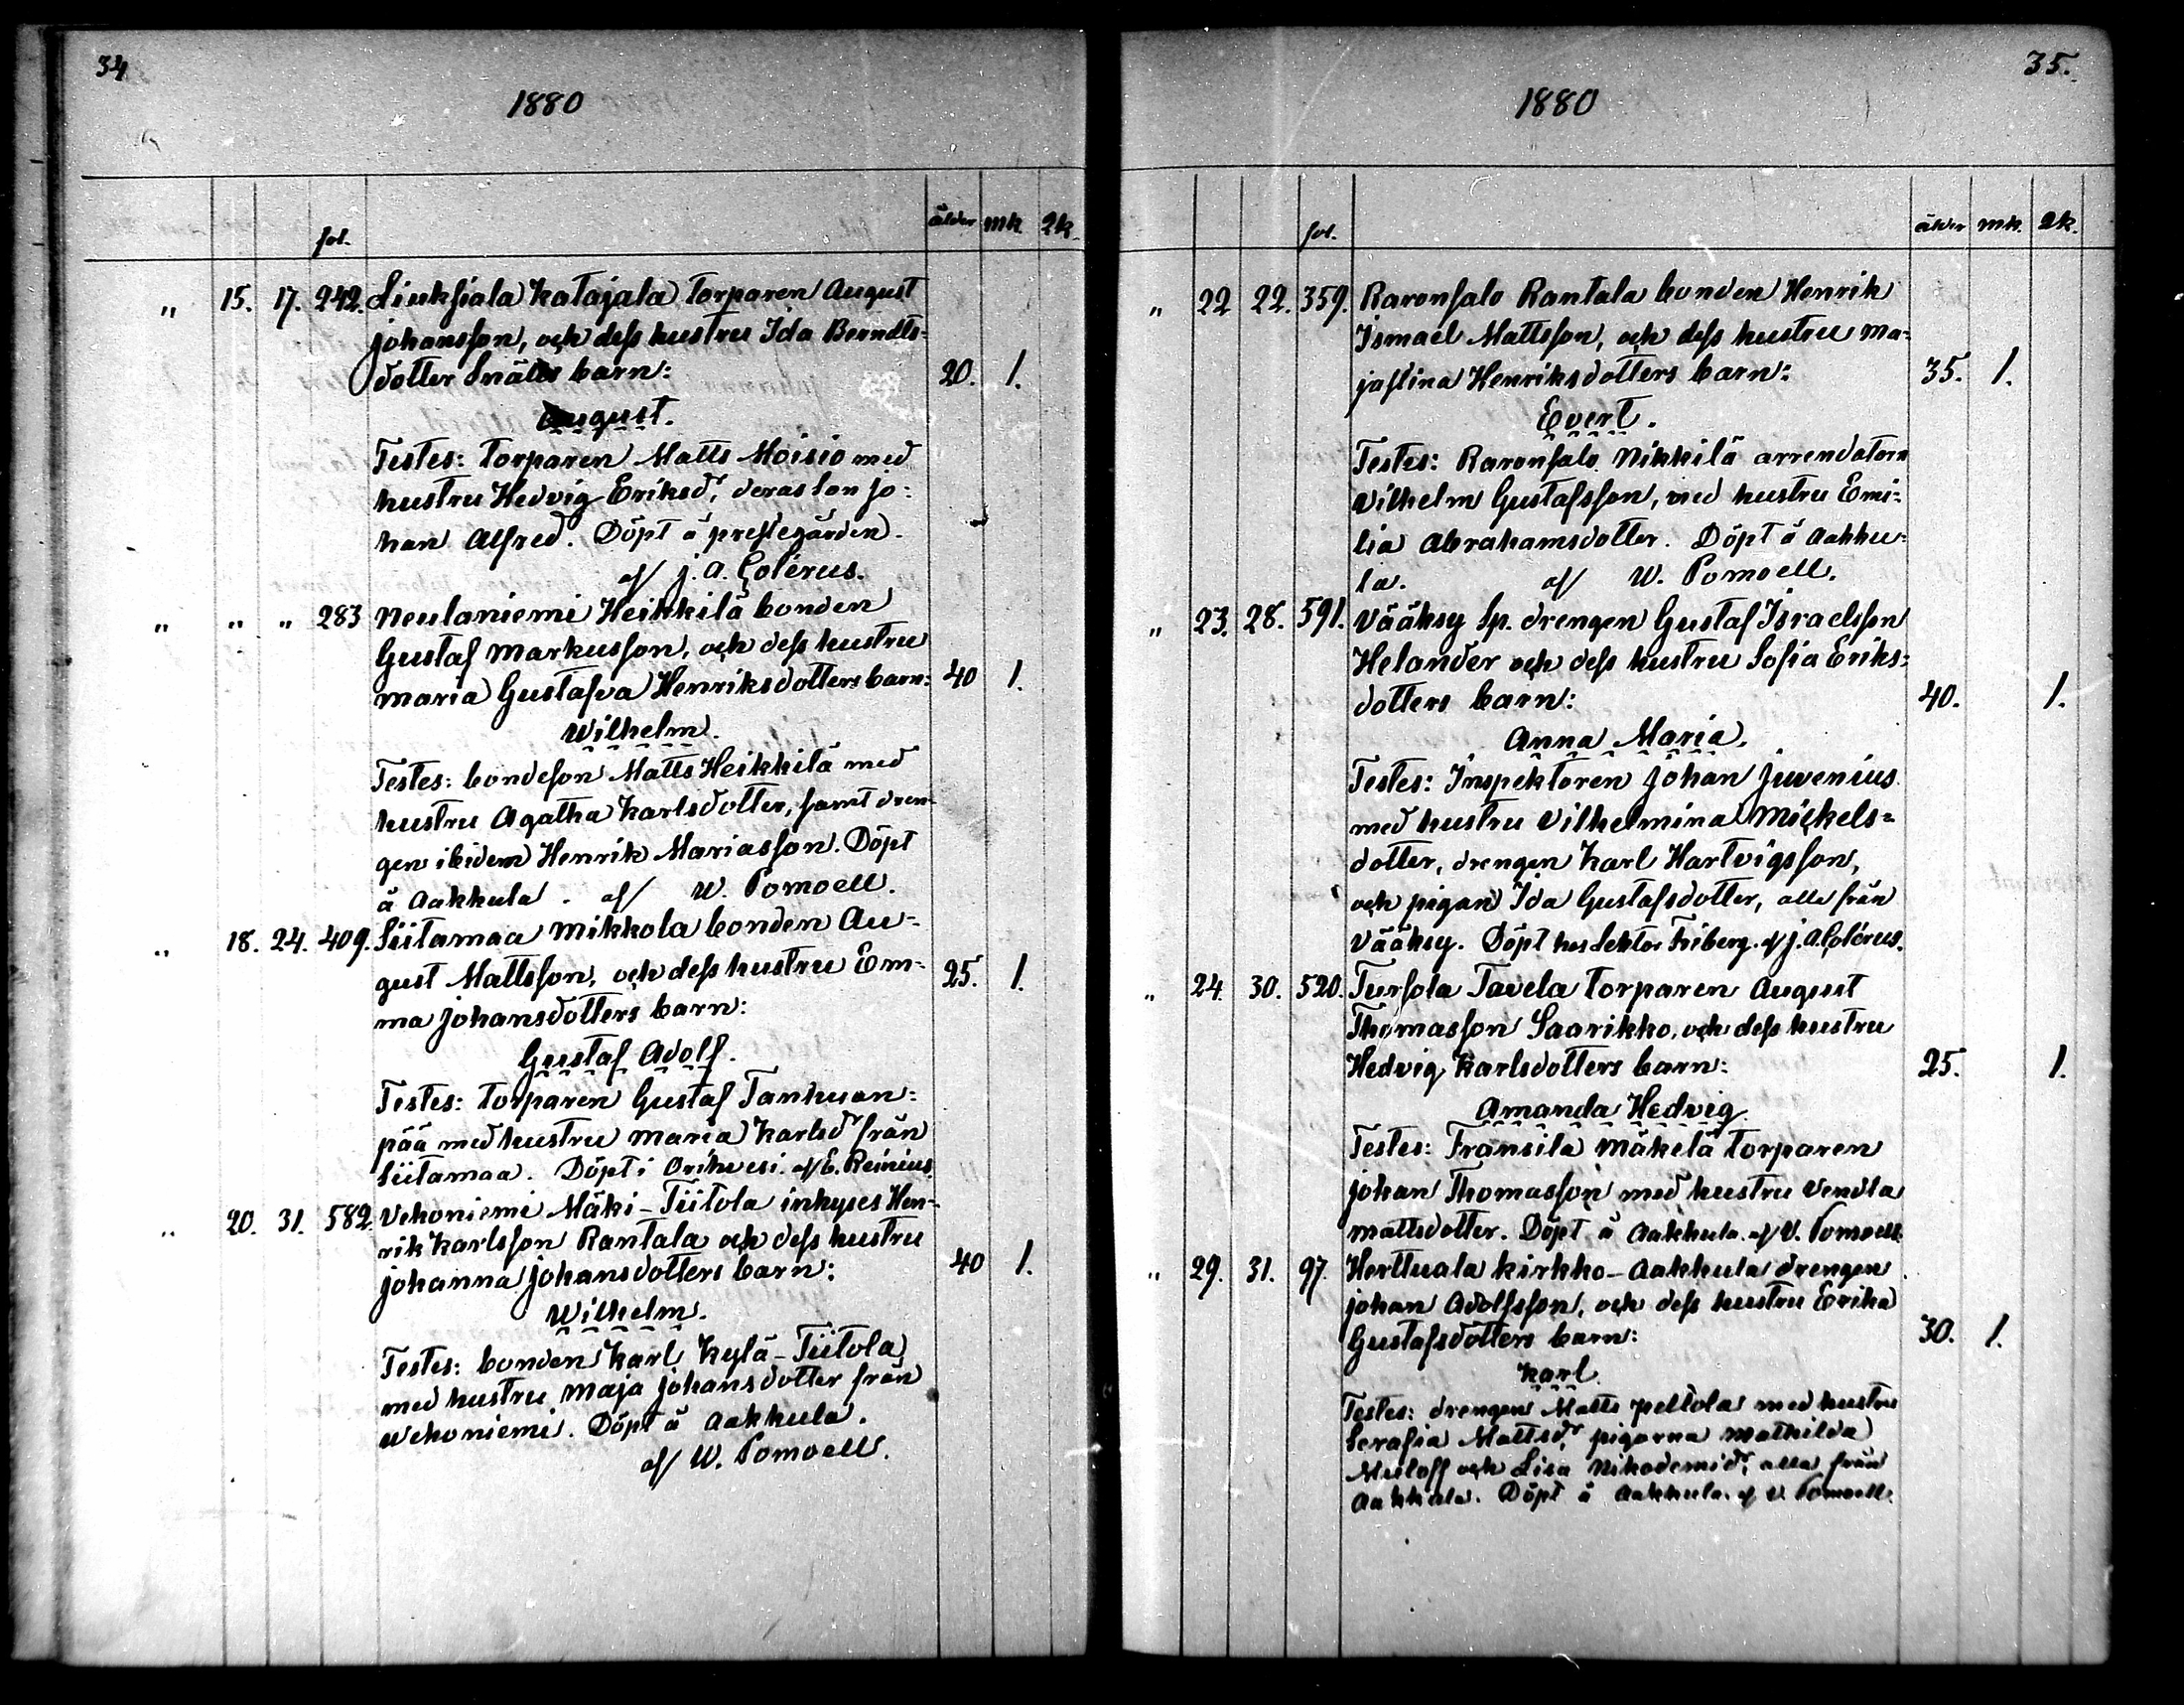 34
1880
fol. ålder mk. qk.
" 15. 17. 242. Liuksiala Katajala torparen August
Johansson, och dess hustru Ida Berndts-
dotter Snälls barn: 20. 1.
August.
Testes: torparen Matts Moisio med
hustru Hedvig Eriksdr, deras son Jo-
han Alfred. Döpt å prestegården.
af J. A. Colérus.
" " " 283 Neulaniemi Heikkilä bonden
Gustaf Markusson, och dess hustru
Maria Gustafva Henriksdotters barn: 40 1.
Wilhelm.
Testes: bondeson Matts Heikkilä med
hustru Agatha Karlsdotter, samt dren-
gen ibidem Henrik Mariasson. Döpt
å Aakkula. af W. Pomoell.
" 18. 24. 409. Siitamaa Mikkola bonden Au-
gust Mattsson, och dess hustru Em- 25. 1.
ma Johansdotters barn:
Gustaf Adolf.
Testes: torparen Gustaf Tanhuan-
pää med hustru Maria Karlsdr från
Siitamaa. Döpt i Orihvesi. af E. Reinius.
" 20. 31. 582. Vehoniemi Mäki-Tiitola inhyses Hen-
rik Karlsson Rantala och dess hustru
Johanna Johansdotters barn: 40 1.
Wilhelm.
Testes: bonden Karl Kylä-Tiitola
med hustru Maja Johansdotter från
Wehoniemi. Döpt å Aakkula.
af W. Pomoell.
35.
1880
fol. ålder mk. qk.
" 22 22. 359. Raronsalo Rantala bonden Henrik
Ismael Mattsson, och dess hustru Ma-
jastina Henriksdotters barn: 35. 1.
Evert.
Testes: Raronsalo Nikkilä arrendatorn
Vilhelm Gustafsson, med hustru Emi-
lia Abrahamsdotter. Döpt å Aakku-
la. af W. Pomoell.
" 23. 28. 591. Vääksy Sp. drengen Gustaf Israelsson
Helander och dess hustru Sofia Eriks-
dotters barn: 40. 1.
Anna Maria.
Testes: Inspektoren Johan Juvenius
med hustru Vilhelmina Mickels-
dotter, drengen Karl Hartvigsson,
och pigan Ida Gustafsdotter, alla från
Vääksy. Döpt hos Lektor Friberg. af J. A. Colérus.
" 24. 30. 520. Tursola Tavela torparen August
Thomasson Saarikko, och dess hustru
Hedvig Karlsdotters barn: 25. 1.
Amanda Hedvig
Testes: Fransila Mäkelä torparen
Johan Thomasson med hustru Vendla
Mattsdotter. Döpt å Aakkula. af V. Pomoell.
" 29. 31. 97. Herttuala Kirkko-Aakkula drengen
Johan Adolfsson, och dess hustru Erika
Gustafsdotters barn: 30. 1.
Karl.
Testes: drengen Matts Peltola med hustru
Serafia Mattsdr, pigorna Mathilda
och Lisa Nikodemidr, alla från
Aakkula. Döpt å Aakkula. af V. Pomoell.